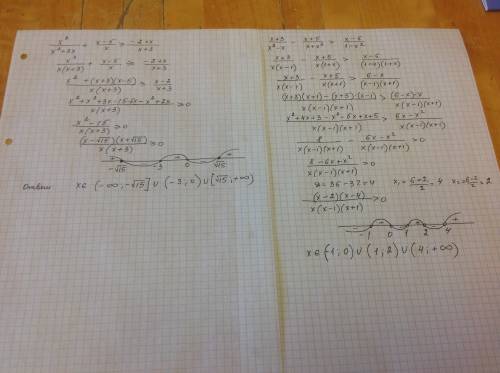 x² / (x²+3x) + (x-5)/x ≥ (-2+x)/(x+3)
x² / (x(x+3)) + (x-5)/x ≥ (-2+x)/(x+3)
(x² + (x+3)(x-5)) / (x(x+3)) ≥ (x-2)/(x+3)
(x²+x²+3x-15-5x-x²+2x) / (x(x+3)) ≥ 0
(x²-15) / (x(x+3)) ≥ 0
(x-√15)(x+√15) / (x(x+3)) ≥ 0
+ - + - +
-√15 -3 0 √15
x∈ (-∞; -√15] ∪ (-3; 0) ∪ [√15; +∞)
(x+3)/(x²-x) - (x+5)/(x+x²) > (x-6)/(1-x²)
(x+3)/(x(x-1)) - (x+5)/(x(1+x)) > (x-6)/((1-x)(1+x))
(x+3)/(x(x-1)) - (x+5)/(x(x+1)) > (6-x)/((x-1)(x+1))
((x+3)(x+1)-(x+5)(x-1)) / (x(x-1)(x+1)) > (6-x)·x / (x(x-1)(x+1))
(x²+4x+3-x²-5x+x+5) / (x(x-1)(x+1)) > (6x-x²) / (x(x-1)(x+1))
8 / (x(x-1)(x+1)) - (6x-x²) / (x(x-1)(x+1)) > 0
(8-6x+x²) / (x(x-1)(x+1)) > 0
D = 36-32=4 x₁ = (6+2)/2 = 4 x₂ = (6-2)/2 = 2
(x-2)(x-4) / (x(x-1)(x+1)) > 0
- + - + - +
-1 0 1 2 4
x∈ (-1; 0) ∪ (1; 2) ∪ (4; +∞)